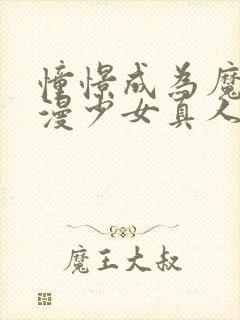 憧憬成为魔
漫少女真人
魔王大叔